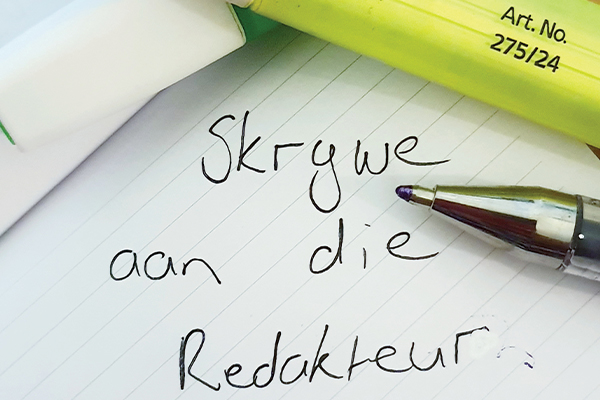 Art. No.
275/24
Skrywe
aan die
Redakteur